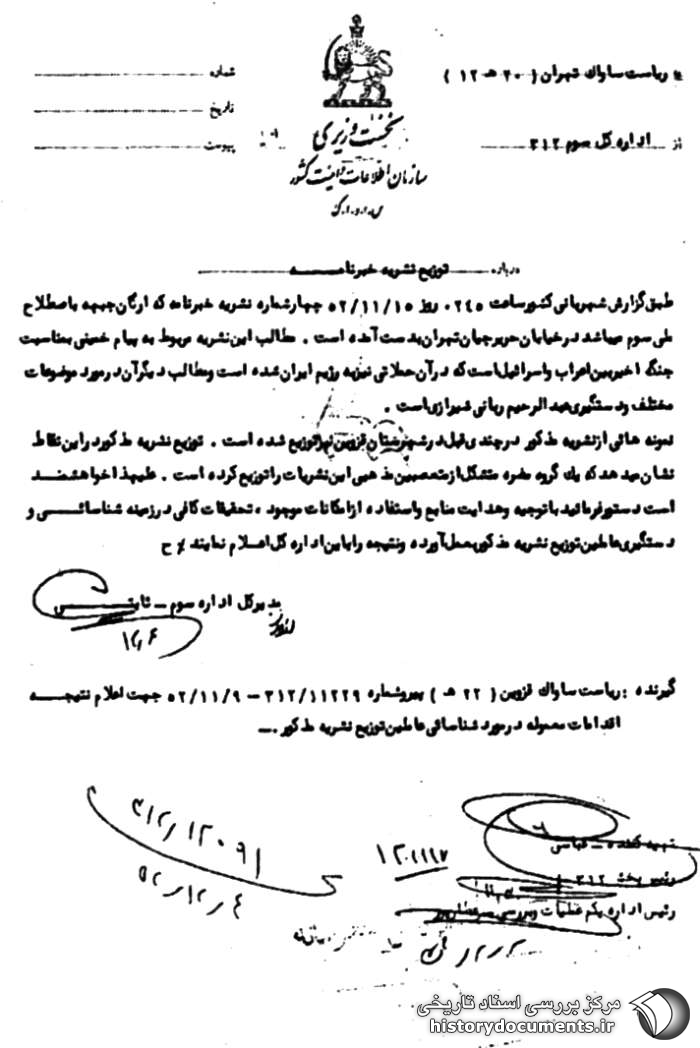 * ریاست ساواک تهران ( ۲۰ هـ ۱۲ )
شماره
تاریخ
پیوست
از اداره کل سوم ۳۱۲
نخست وزیری
سازمان اطلاعات و امنیت کشور
س.ا.و.ا.ک
درباره توزیع نشریه خبرنامه
طبق گزارش شهربانی کشور ساعت ۰۲۴۵ روز ۵۲/۱۱/۱۵ چهار شماره نشریه خبرنامه که ارگان جبهه باصطلاح
ملی سوم میباشد در خیابان حریرچیان تهران بدست آمده است . مطالب این نشریه مربوط به پیام خمینی بمناسبت
جنگ اخیر بین اعراب و اسرائیل است که در آن حملاتی نیز به رژیم ایران شده است و مطالب دیگر آن در مورد موضوعات
مختلف و دستگیری عبدالرحیم ربانی شیرازی است .
نمونه هائی از نشریه مذکور در چندی قبل در شهرستان قزوین نیز توزیع شده است . توزیع نشریه مذکور در این نقاط
نشان میدهد که یک گروه مضره متشکل از متعصبین مذهبی این نشریات را توزیع کرده است . علیهذا خواهشمند
است دستور فرمائید با توجیه و هدایت منابع و استفاده از امکانات موجود ، تحقیقات کافی در زمینه شناسائی و
دستگیری عاملین توزیع نشریه مذکور بعمل آورده و نتیجه را باین اداره کل اعلام نمایند ٪ ح
مدیر کل اداره سوم ــ ثابتی
گیرنده : ریاست ساواک قزوین ( ۲۲ هـ ) پیرو شماره ۳۱۲/۱۱۲۲۹ – ۵۲/۱۱/۹ جهت اعلام نتیجه
اقدامات معموله در مورد شناسائی عاملین توزیع نشریه مذکور .ــ
۳۱۲/۱۲۰۹۱
۵۲/۱۲/۴
تهیه کننده ــ عباسی
رئیس بخش ۳۱۲
رئیس اداره یکم عملیات و بررسی
مرکز بررسی اسناد تاریخی
historydocuments.ir